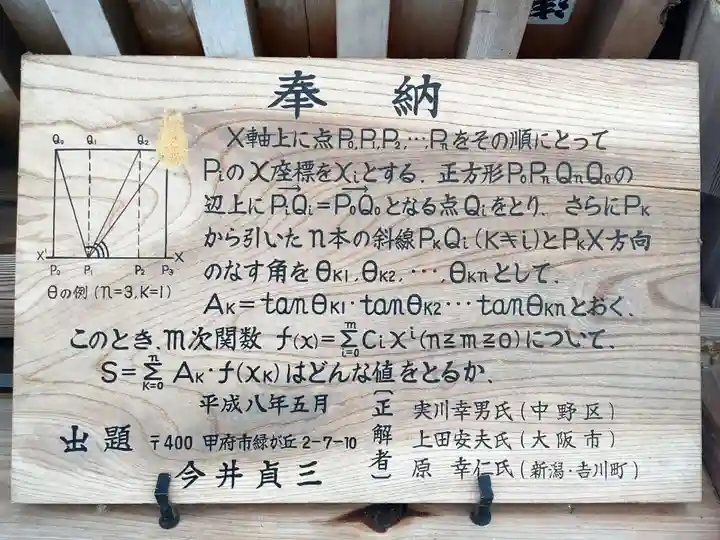 奉納
X軸上に点P₀,P₁,P₂,…Pnをその順にとって
PiのX座標をXiとする．正方形P₀PnQnQ₀の
辺上に\overrightarrow{PiQi}=\overrightarrow{P₀Q₀}となる点Qiをとり、さらにPK
から引いたn本の斜線PKQi(K≠i)とPKX方向
のなす角をθK1,θK2,…,θKnとして．
AK=tanθK1・tanθK2…tanθKnとおく．
このとき、m次関数 f(x)=\sum_{i=0}^{m}CiXⁱ(n≧m≧0)について、
S=\sum_{K=0}^{n}AK・f(XK)はどんな値をとるか．
平成八年五月
出題 〒400 甲府市緑が丘2-7-10
今井貞三
(正解者)
実川幸男氏(中野区)
上田安夫氏(大阪市)
原 幸仁氏(新潟・吉川町)
Q₀ Q₁ Q₂
X' X
P₀ P₁ P₂ P₃
θの例(n=3,K=1)